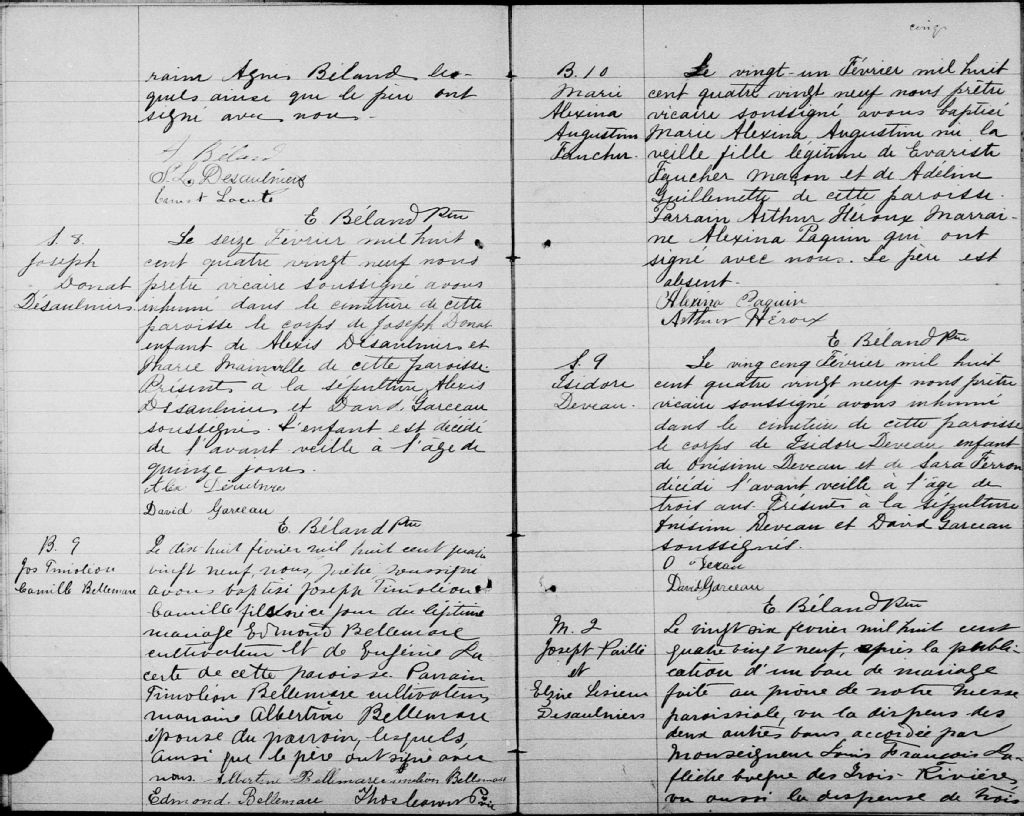 raine Agnes Béland les-
quels ainsi que le père ont
signé avec nous.
A Béland
S L Desaulniers
Ernest Lacerte
E. Béland Ptre
S. 8.
Joseph
Donat
Désaulniers.
Le seize Février mil huit
cent quatre vingt neuf nous
prêtre vicaire soussigné avons
inhumé dans le cimetière de cette
paroisse le corps de Joseph Donat
enfant de Alexis Desaulniers et
Marie Mainville de cette paroisse.
Présents à la sépulture Alexis
Desaulniers et David Garceau
soussignés. L'enfant est décédé
de l'avant veille à l'âge de
quinze jours.
Alex Desaulniers
David Garceau
E. Béland Ptre
B. 9
Jos Timoléon
Camille Bellemare
Le dix huit février mil huit cent quatre
vingt neuf, nous, prêtre soussigné
avons baptisé Joseph Timoléon
Camille fils né ce jour du légitime
mariage Edmond Bellemare
cultivateur et de Eugénie La
certe de cette paroisse Parrain
Timoléon Bellemare cultivateur,
marraine Albertine Bellemare
épouse du parrain, lesquels
ainsi que le père ont signé avec
nous. Albertine Bellemare Timoléon Bellemare
Edmond Bellemare
cinq
B. 10
Marie
Alexina
Augustine
Faucher.
Le vingt-un Février mil huit
cent quatre vingt neuf nous prêtre
vicaire soussigné avons baptisé
Marie Alexina Augustine née la
veille fille légitime de Evariste
Faucher maçon et de Adéline
Guillemette de cette paroisse.
Parrain Arthur Héroux Marrai-
ne Alexina Paquin qui ont
signé avec nous. Le père est
absent.
Alexina Paquin
Arthur Héroux
E. Béland Ptre
S. 9
Isidore
Deveau.
Le ving cinq Février mil huit
cent quatre vingt neuf nous prêtre
vicaire soussigné avons inhumé
dans le cimetière de cette paroisse
le corps de Isidore Deveau enfant
de Onésime Deveau et de Sara Ferron
décédé l'avant veille à l'âge de
trois ans. Présents à la sépulture
Onésime Deveau et David Garceau
soussignés.
David Garceau
E. Béland Ptre
M. 2
Joseph Paillé
et
Elzire Lesieur
Desaulniers
Le vingt six février mil huit cent
quatre vingt neuf, après la publi-
cation d'un ban de mariage
faite au prône de notre messe
paroissiale, vu la dispense des
deux autres bans accordée par
Monseigneur Louis François La-
flèche évêque des Trois-Rivières,
vu aussi la dispense de trois